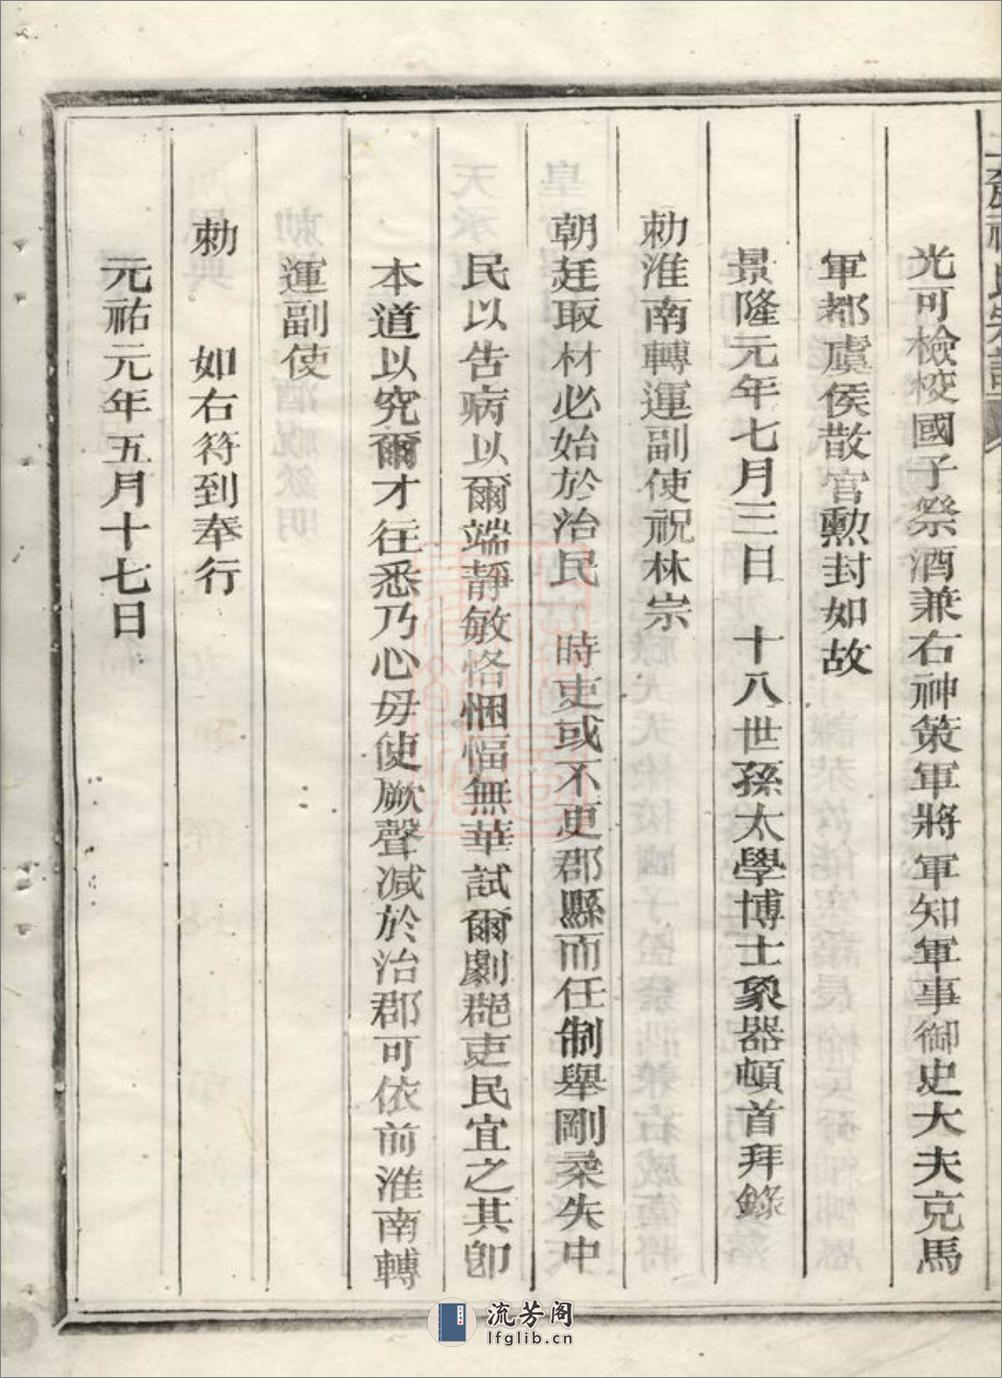 光可檢校國子祭酒兼右神策軍將軍知軍事御史大夫克馬
軍都虞侯散官勲封如故
景隆元年七月三日 十八世孫太學博士象器頓首拜錄
勅淮南轉運副使祝林宗
朝廷取材必始於治民 時吏或不更郡縣而任制舉剛柔失中
民以告病以爾端靜敏恪悃愊無華試爾劇郡吏民宜之其卽
本道以究爾才往悉乃心毋使厥聲减於治郡可依前淮南轉
運副使
勅 如右符到奉行
元祐元年五月十七日
流芳阁
lfglib.cn